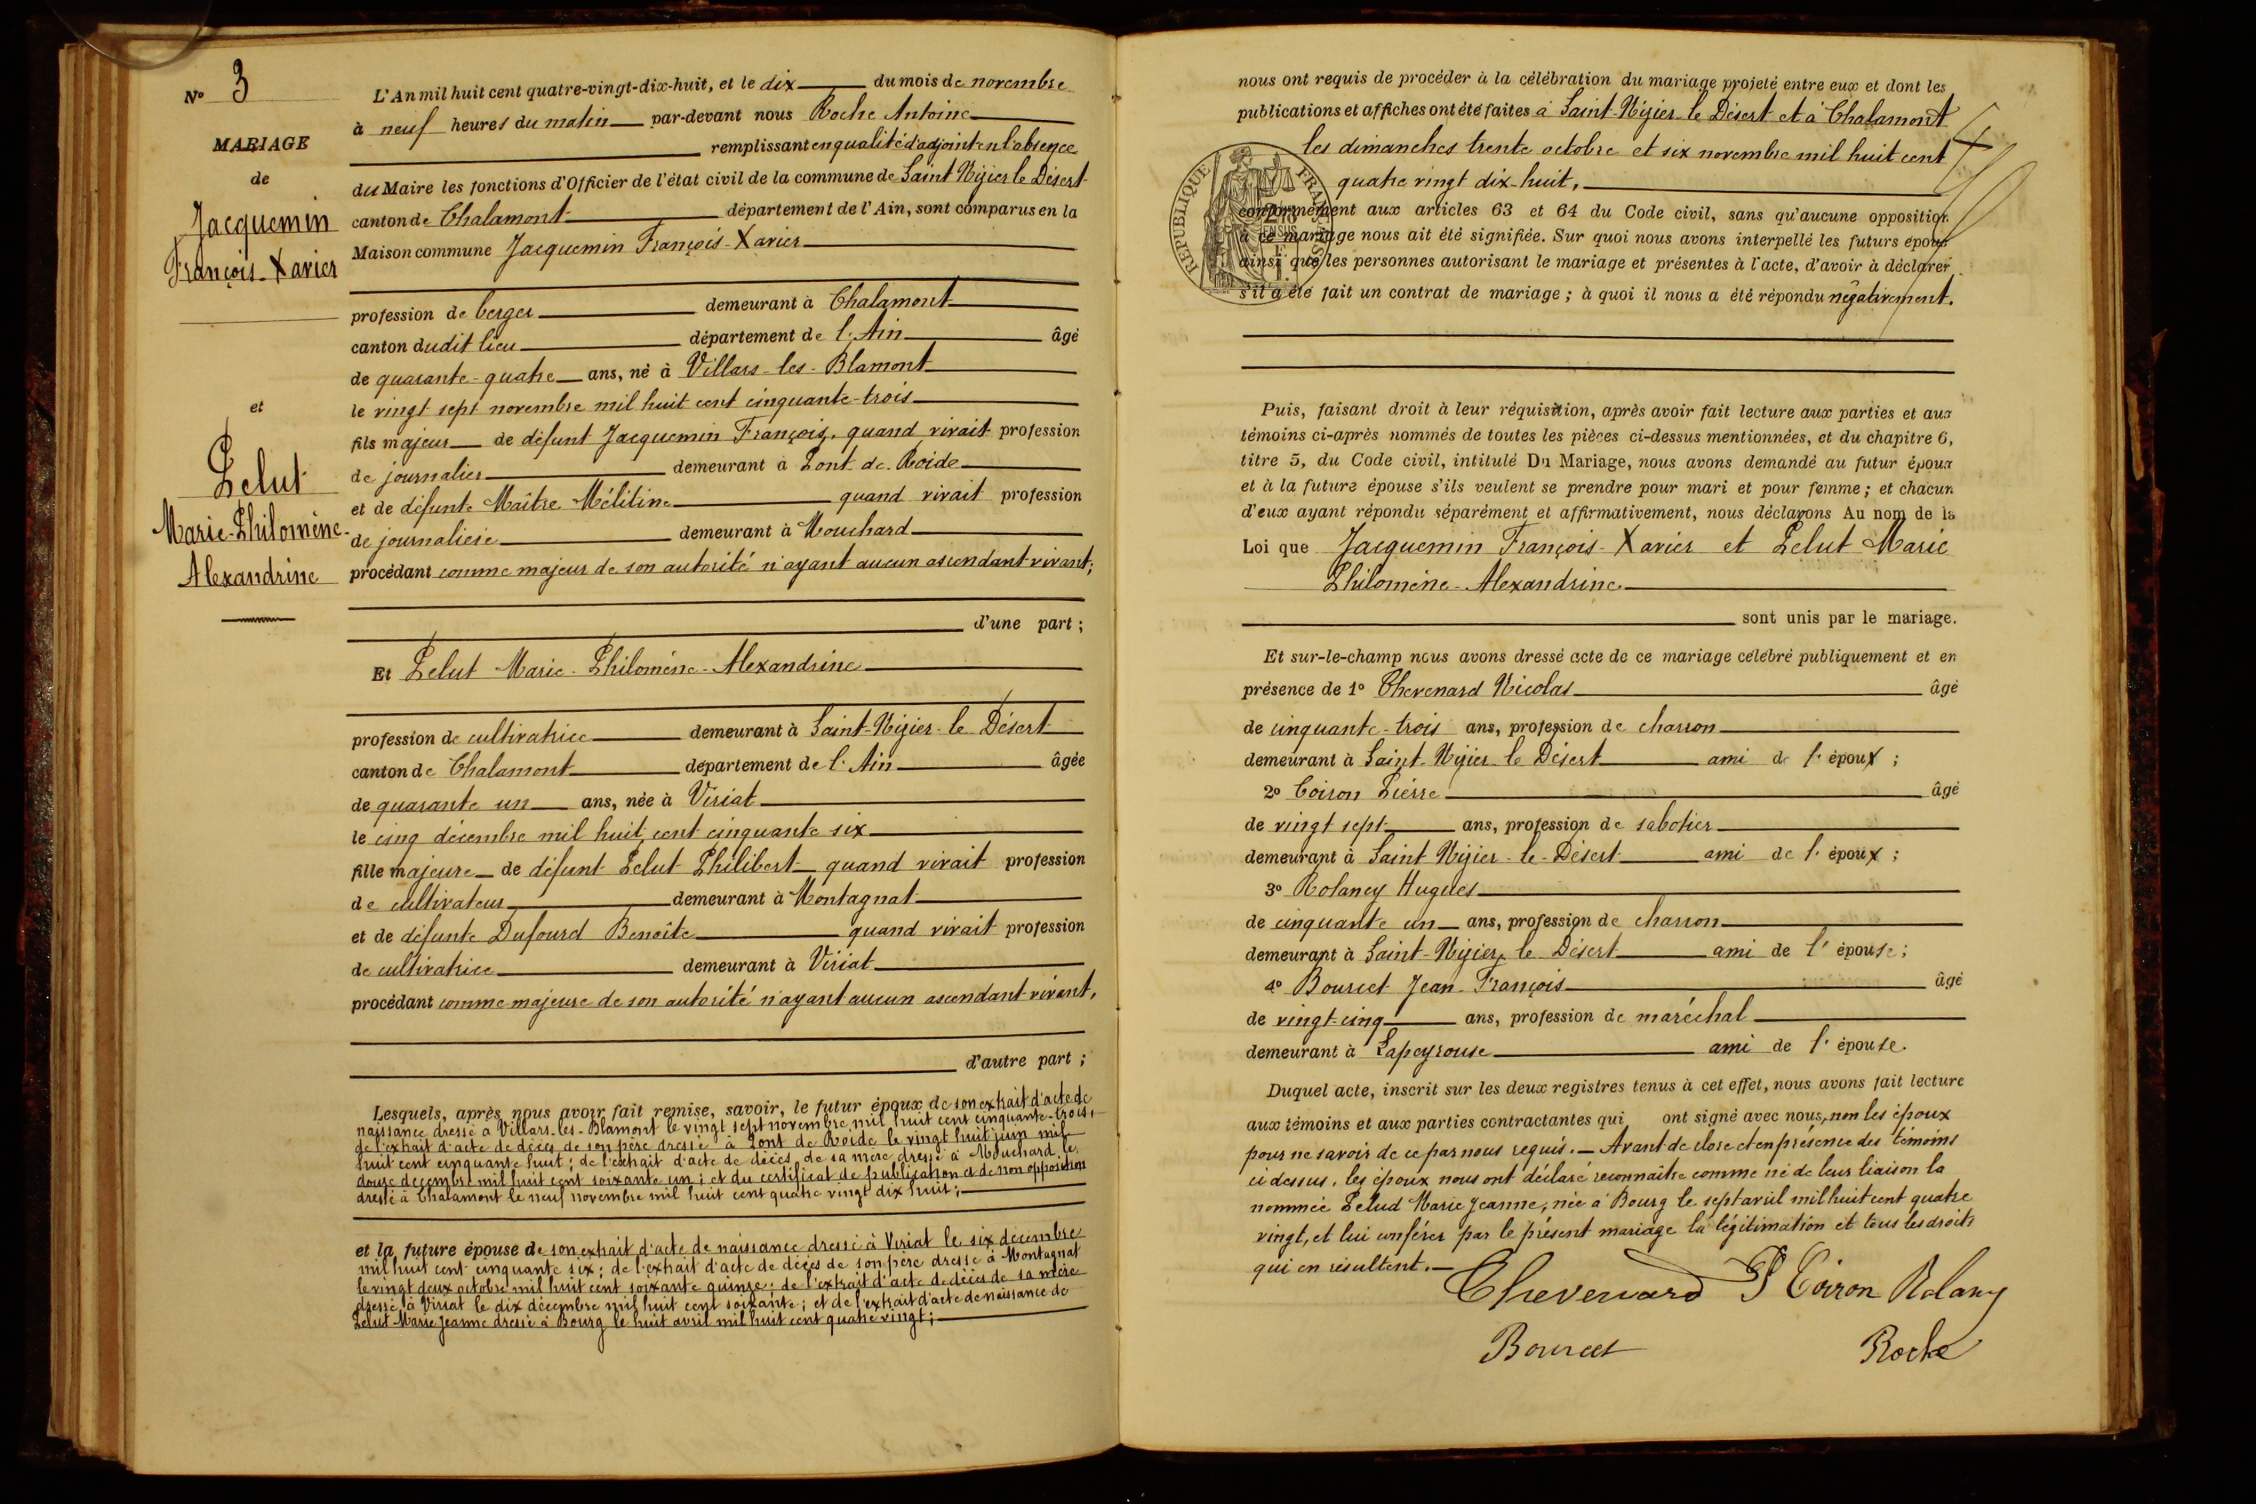 N° 3
MARIAGE
de
Jacquemin
François-Xavier
et
Pelut
Marie-Philomène-
Alexandrine
L'An mil huit cent quatre-vingt-dix-huit, et le dix du mois de novembre
à neuf heures du matin par-devant nous Roche Antoine
remplissant en qualité d'adjoint en l'absence
du Maire les fonctions d'Officier de l'état civil de la commune de Saint Nizier le Désert
canton de Chalamont département de l'Ain, sont comparus en la
Maison commune Jacquemin François-Xavier
profession de berger demeurant à Chalamont
canton dudit lieu département de l'Ain âgé
de quarante-quatre ans, né à Villars-les-Blamont
le vingt sept novembre mil huit cent cinquante-trois
fils majeur de défunt Jacquemin François, quand vivait profession
de journalier demeurant à Pont de Roide
et de défunte Maître Mélitine quand vivait profession
de journalière demeurant à Mouchard
procédant comme majeur de son autorité n'ayant aucun ascendant vivant;
d'une part ;
Et Pelut Marie-Philomène-Alexandrine
profession de cultivatrice demeurant à Saint-Nizier-le Désert
canton de Chalamont département de l'Ain âgée
de quarante un ans, née à Viriat
le cinq décembre mil huit cent cinquante six
fille majeure de défunt Pelut Philibert quand vivait profession
de cultivateur demeurant à Montagnat
et de défunte Dufourd Benoîte quand vivait profession
de cultivatrice demeurant à Viriat
procédant comme majeure de son autorité n'ayant aucun ascendant vivant,
d'autre part ;
Lesquels, après nous avoir fait remise, savoir, le futur époux de son extrait d'acte de
naissance dressé à Villars-les-Blamont le vingt sept novembre mil huit cent cinquante-trois,
de l'extrait d'acte de décès de son père dressé à Pont de Roide le vingt huit juin mil
huit cent cinquante huit ; de l'extrait d'acte de décès de sa mère dressé à Mouchard le
douze décembre mil huit cent soixante un ; et du certificat de publication et de non opposition
dressé à Chalamont le neuf novembre mil huit cent quatre vingt dix huit ;
et la future épouse de son extrait d'acte de naissance dressé à Viriat le six décembre
mil huit cent cinquante six ; de l'extrait d'acte de décès de son père dressé à Montagnat
le vingt deux octobre mil huit cent soixante quinze ; de l'extrait d'acte de décès de sa mère
dressé à Viriat le dix décembre mil huit cent soixante ; et de l'extrait d'acte de naissance de
Pelut Marie Jeanne dressé à Bourg le huit avril mil huit cent quatre vingt ;
nous ont requis de procéder à la célébration du mariage projeté entre eux et dont les
publications et affiches ont été faites à Saint-Nizier-le Désert et à Chalamont
les dimanches trente octobre et six novembre mil huit cent
quatre vingt dix-huit,
RÉPUBLIQUE FRANÇAISE
conformément aux articles 63 et 64 du Code civil, sans qu'aucune opposition
à ce mariage nous ait été signifiée. Sur quoi nous avons interpellé les futurs époux
ainsi que les personnes autorisant le mariage et présentes à l'acte, d'avoir à déclarer
s'il a été fait un contrat de mariage ; à quoi il nous a été répondu négativement.
Puis, faisant droit à leur réquisition, après avoir fait lecture aux parties et aux
témoins ci-après nommés de toutes les pièces ci-dessus mentionnées, et du chapitre 6,
titre 5, du Code civil, intitulé Du Mariage, nous avons demandé au futur époux
et à la future épouse s'ils veulent se prendre pour mari et pour femme ; et chacun
d'eux ayant répondu séparément et affirmativement, nous déclarons Au nom de la
Loi que Jacquemin François-Xavier et Pelut Marie
Philomène-Alexandrine
sont unis par le mariage.
Et sur-le-champ nous avons dressé acte de ce mariage célébré publiquement et en
présence de 1° Chevenard Nicolas âgé
de cinquante-trois ans, profession de charron
demeurant à Saint-Nizier le Désert ami de l'époux ;
2° Coiron Pierre âgé
de vingt sept ans, profession de sabotier
demeurant à Saint Nizier-le-Désert ami de l'époux ;
3° Rolancy Hugues
de cinquante un ans, profession de charron
demeurant à Saint-Nizier le Désert ami de l'épouse ;
4° Bourcet Jean-François âgé
de vingt-cinq ans, profession de maréchal
demeurant à Lapeyrouse ami de l'épouse.
Duquel acte, inscrit sur les deux registres tenus à cet effet, nous avons fait lecture
aux témoins et aux parties contractantes qui ont signé avec nous, non les époux
pour ne savoir de ce par nous requis. — Avant de clore et en présence des témoins
ci dessus, les époux nous ont déclaré reconnaître comme né de leur liaison la
nommée Pelud Marie Jeanne, née à Bourg le sept avril mil huit cent quatre
vingt, et lui conférer par le présent mariage la légitimation et tous les droits
qui en résultent.—
Chevenard P Coiron Rolancy
Bourcet Roche